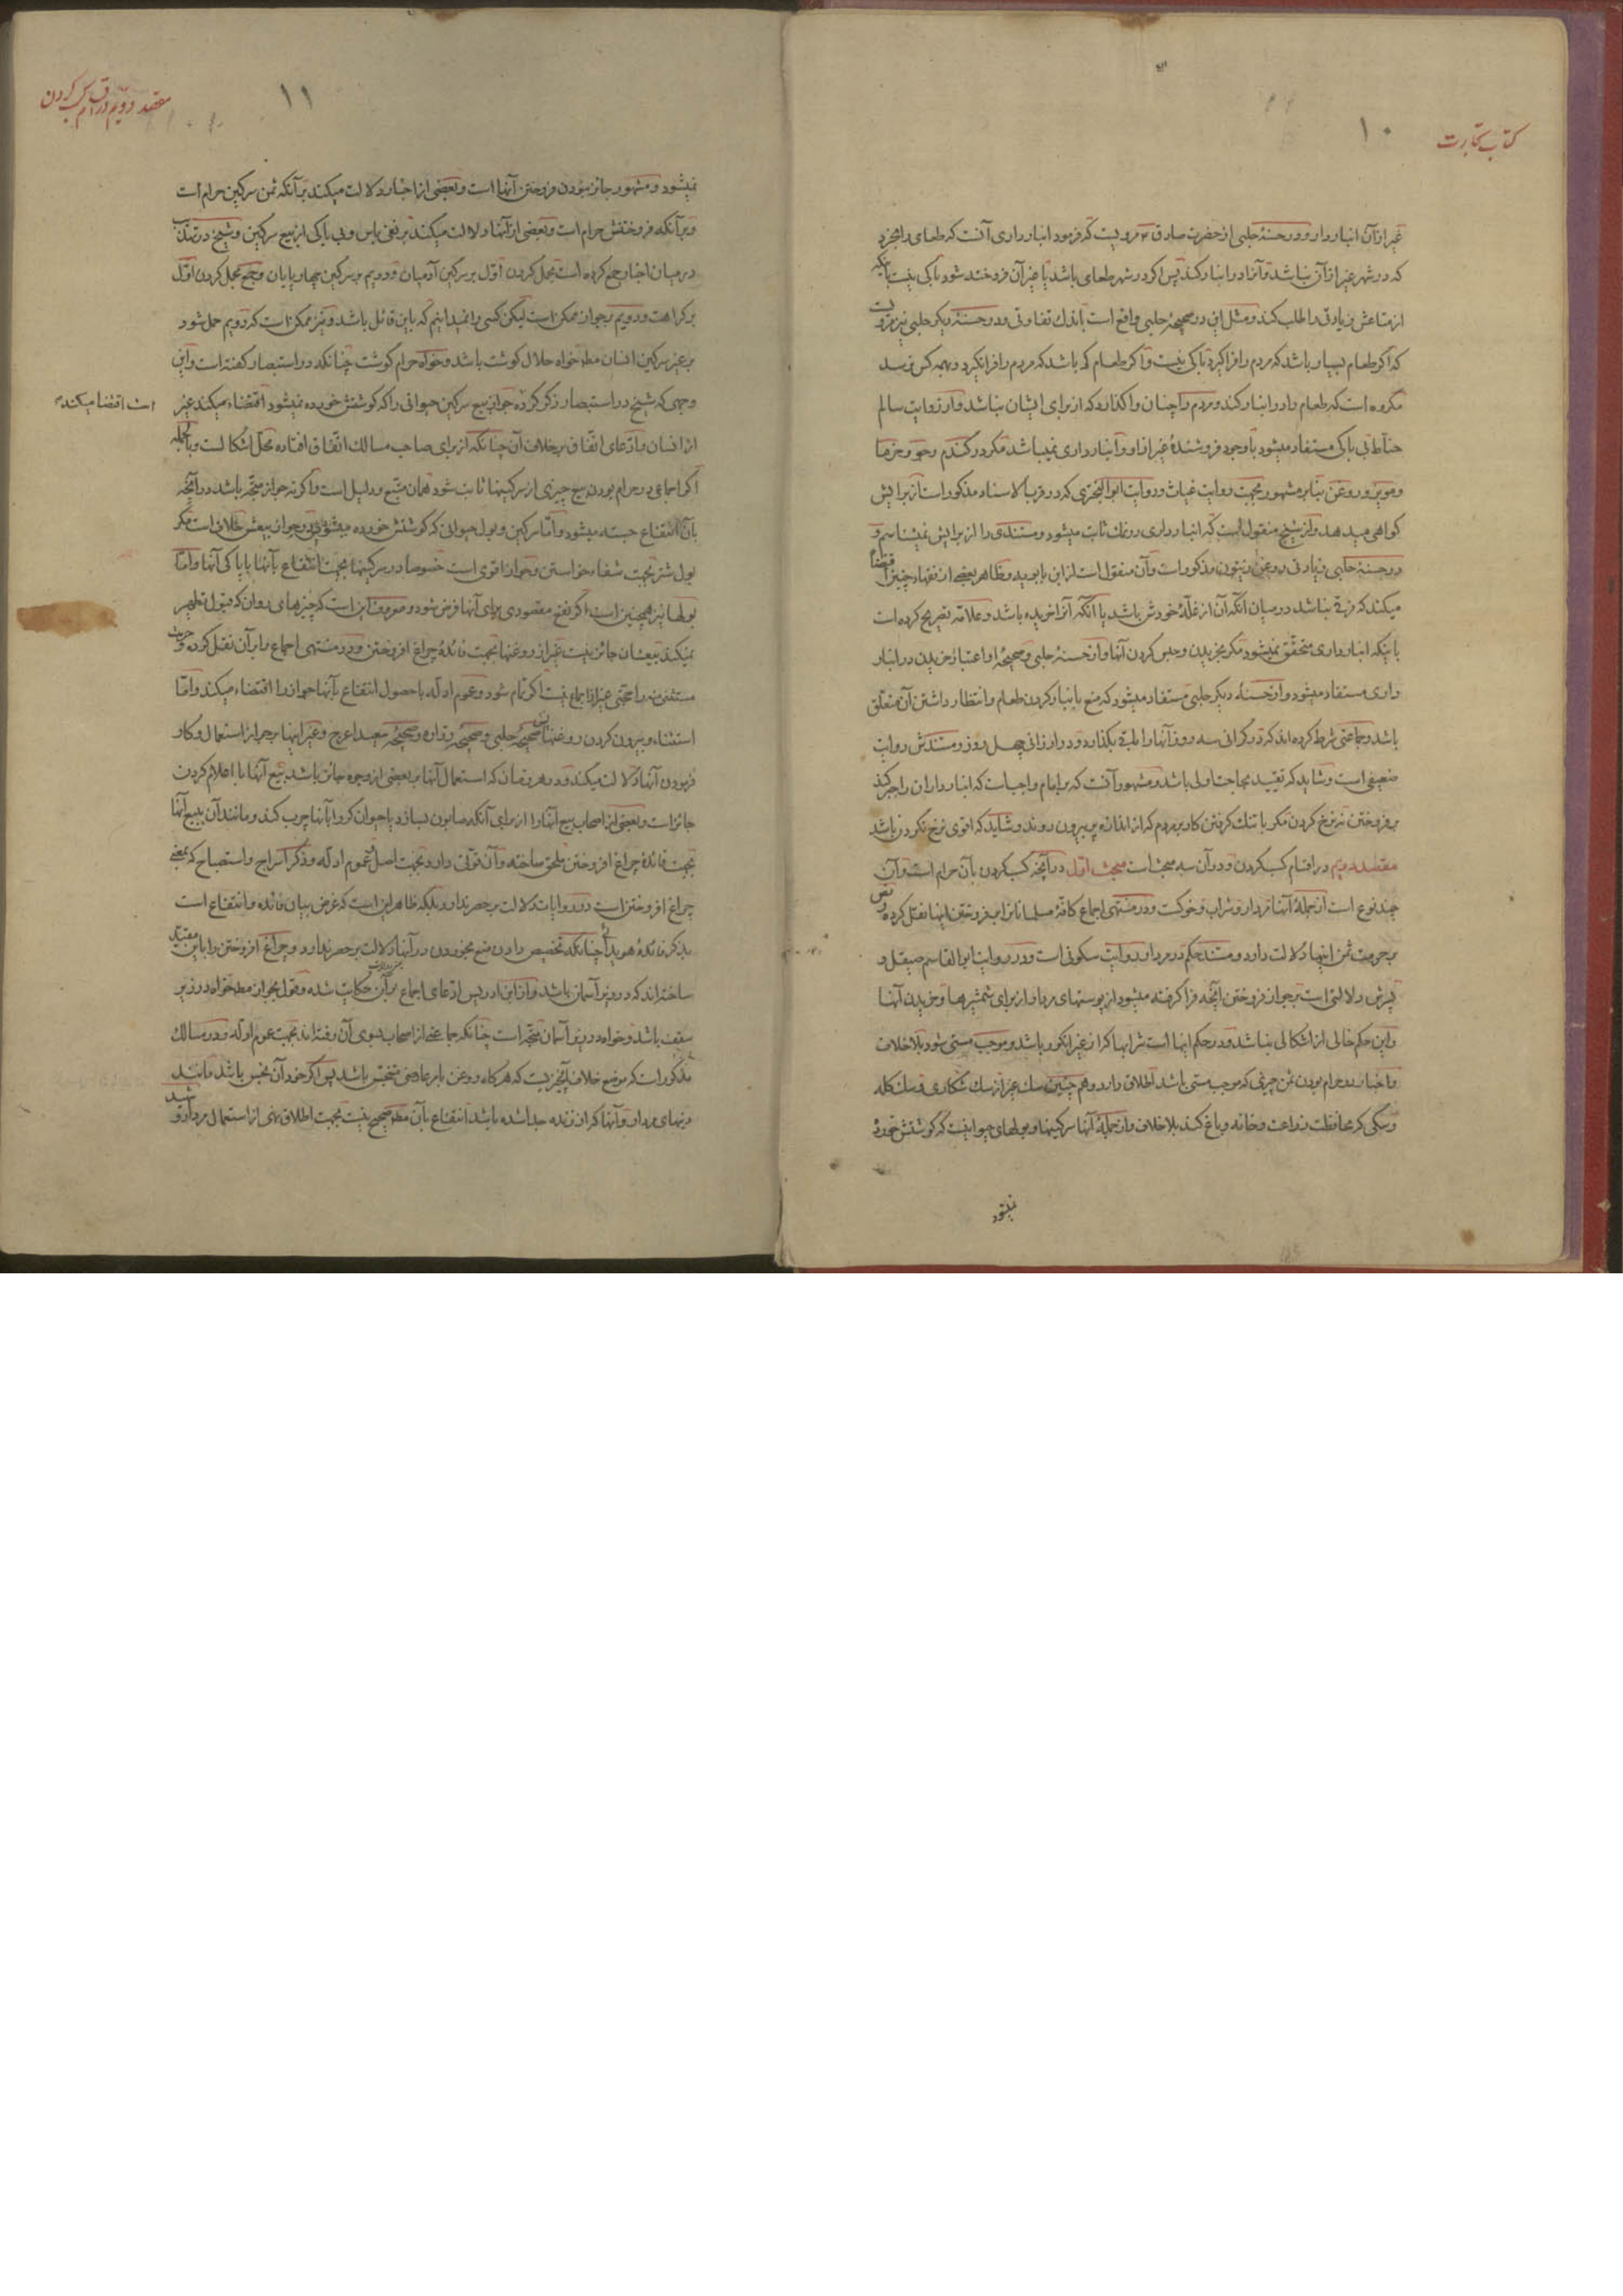 کتاب تجارت
۱۰
غیر از آن انباردار و در حسنهٔ حلبی از حضرت صادق ع مرویست که فرمود انبارداری آنست که طعامی را بخرد
که در شهر غیر از آن نباشد و آنرا در انبار کند پس اگر در شهر طعامی باشد یا غیر آن فروخته شود باکی نیست باینکه
از متاعش زیادتی را طلب کند و مثل این در صحیحهٔ حلبی واقع است باندك تفاوتی و در حسنهٔ دیگر حلبی نیز مرویست
که اگر طعام بسیار باشد که مردم را فرا گیرد باکی نیست و اگر طعام کم باشد که مردم را فرا نگیرد و بهمه کس نرسد
مکروه است که طعام را در انبار کند و مردم را چنان واگذارد که از برای ایشان نباشد و از روایت سالم
حنّاط بی باکی مستفاد میشود با وجود فروشندهٔ غیر از او و انبارداری نمیباشد مگر در گندم و جو و خرما
و مویز و روغن بنابر مشهور بجهت روایت غیاث و روایت ابو البختری که در قرب الاسناد مذکور است از برایش
گواهی میدهد و از شیخ منقول است که انبارداری در نمك ثابت میشود و مستندی را از برایش نمیشناسم و
در حسنهٔ حلبی زیادتی روغن زیتون مذکور است و آن منقول است از ابن بابویه و ظاهر بعضی از فقها چنین اقتضا
میکند که فرق نباشد در میان آنکه آن از غلّهٔ خودش باشد یا آنکه آنرا خریده باشد و علامه تصریح کرده است
باینکه انبارداری متحقّق نمیشود مگر بخریدن و حبس کردن آنها و از حسنهٔ حلبی و صحیحهٔ او اعتبار خریدن در انبار
داری مستفاد میشود و از حسنهٔ دیگر حلبی مستفاد میشود که منع بانبار کردن طعام و انتظار داشتن آن متعلّق
باشد و جماعتی شرط کرده اند که در گرانی سه روز آنها را باقی بگذارد و در ارزانی چهل روز و مستندش روایت
ضعیفی است و شاید که تقیید بحاجت اولی باشد و مشهور آنست که بر امام واجبست که انبارداران را جبر کند
بر فروختن نه نرخ کردن مگر با تنك گرفتن کار بر مردم که از اندازه بیرون روند و شاید که اقوی نرخ نکردن باشد
مقصد دویم در اقسام کسب کردن و در آن سه مبحث است مبحث اول در آنچه کسب کردن بآن حرام است و آن
چند نوع است از جملهٔ آنها مردار و شراب و خوکست و در منتهی اجماع کافّهٔ مسلمانان را بر فروختن اینها نقل کرده و نص
بر حرمت ثمن اینها دلالت دارد و مستند حکم در مردار روایت سکونی است و در روایت ابو القاسم صیقل و
پسرش دلالتی است بر جواز فروختن آنچه فرا گرفته میشود از پوستهای مردار از برای شمشیرها و خریدن آنها
و این حکم خالی از اشکالی نباشد و در حکم اینها است شرابها که از غیر انگور باشد و موجب مستی شود بلا خلاف
و اخبار در حرام بودن ثمن چیزی که موجب مستی باشد اطلاق دارد و هم چنین سك غیر از سك شکاری و سك گله
و سگی که محافظت زراعت و خانه و باغ کند بلا خلاف و از جملهٔ آنها سرگینها و بولهای حیوانیست که گوشتش خورده
نمیشود
مقصد دویم در اقسام کسب کردن
۱۱
نمیشود و مشهور جائز نبودن فروختن آنها است و بعضی از اخبار دلالت میکند بر آنکه ثمن سرگین حرام است
و بر آنکه فروختنش حرام است و بعضی از آنها دلالت میکند بر نفی باس و بی باکی از بیع سرگین و شیخ در تهذیب
در میان اخبار جمع کرده است بحمل کردن اول بر سرگین آدمیان و دویم بر سرگین چهارپایان و جمع بحمل کردن اوّل
بر کراهت و دویم بر جواز ممکن است لیکن کسی را نمیدانیم که باین قائل باشد و نیز ممکن است که دویم حمل شود
بر غیر سرگین انسان مط خواه حلال گوشت باشد و خواه حرام گوشت چنانکه در استبصار گفته است و این
وجهی که شیخ در استبصار ذکر کرده جواز بیع سرگین حیوانی را که گوشتش خورده نمیشود اقتضاء میکند غیر
است اقتضا میکند
از انسان و ادّعای اتّفاق بر خلاف آن چنانکه از برای صاحب مسالك اتّفاق افتاده محلّ اشکالست و بالجمله
اگر اجماعی در حرام بودن بیع چیزی از سرگینها ثابت شود همان متّبع و دلیل است و اگر نه جواز متّجه باشد در آنچه
بآن انتفاع جسته میشود و امّا سرگین و بول حیوانی که گوشتش خورده میشود پس در جواز بیعش خلاف است مگر
بول شتر بجهت شفا خواستن و جواز اقوی است خصوصا در سرگینها بجهت انتفاع بآنها با پاکی آنها و امّا
بولها نیز همچنین است اگر نفع مقصودی برای آنها فرض شود و معروف این است که چیزهای روان که قبول تطهیر
نمیکند بیعشان جائز نیست غیر از روغنها بجهت فائدهٔ چراغ افروختن و در منتهی اجماع را بر آن نقل کرده و در
مستثنی منه را حجّتی غیر از اجماع نیست اگر تمام شود و عموم ادله با حصول انتفاع بآنها جواز را اقتضاء میکند و امّا
استثناء و بیرون کردن روغنها پس صحیحهٔ حلبی و صحیحهٔ زراره و صحیحهٔ سعید اعرج و غیر اینها بر جواز استعمال و کار
فرمودن آنها دلالت میکند و در هر روغنی که استعمال آنها بر بعضی از وجوه جائز باشد بیع آنها با اعلام کردن
جائز است و بعضی از اصحاب بیع آنها را از برای آنکه صابون بسازد یا حیوان گر را بآنها چرب کند و مانند آن ببیع آنها
بجهت فائدهٔ چراغ افروختن ملحق ساخته و آن قوّتی دارد بجهت اصل و عموم ادله و ذکر اسراج و استصباح که بمعنی
چراغ افروختن است در روایات دلالت بر حصر ندارد بلکه ظاهر این است که غرض بیان فائده و انتفاع است
بذکر فائدهٔ هویدا چنانکه تخصیص دادن منع بخوردن در آنها دلالت بر حصر ندارد و چراغ افروختن را باین مقیّد
ساخته اند که در زیر آسمان باشد و از ابن ادریس ادّعای اجماع بر آن حکایت شده و قول بجواز مط خواه در زیر
سقف باشد و خواه در زیر آسمان متّجه است چنانکه جماعتی از اصحاب بسوی آن رفته اند بجهت عموم ادله و در مسالك
مذکور است که موضع خلاف آنچیزیست که هرگاه روغن بامر عارضی متنجّس باشد پس اگر خود آن نجس باشد مانند
دنبهای مردار و آنها که از زنده جدا شده باشد انتفاع بآن مط صحیح نیست بجهت اطلاق نهی از استعمال مردار و